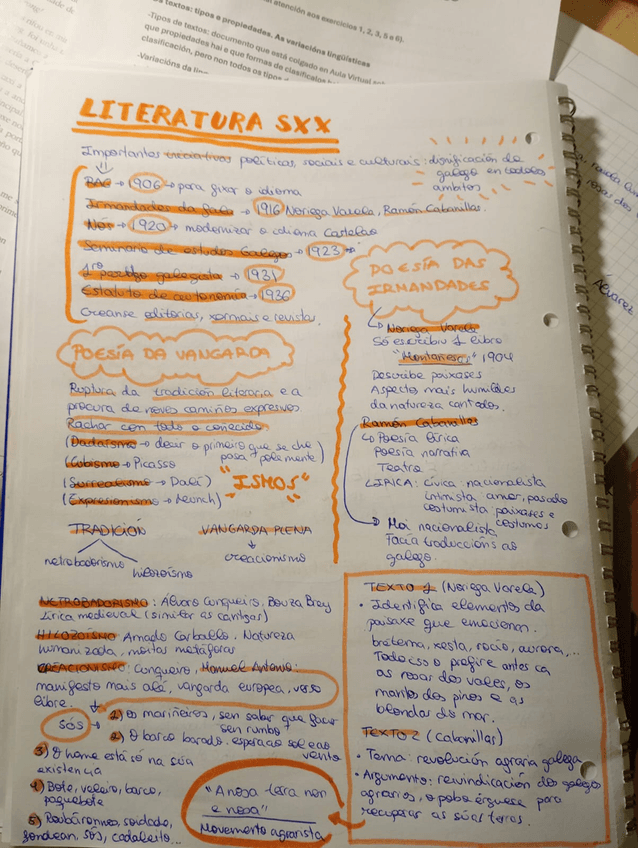 atención aos exercicios 1, 2, 3, 5 e 6).
textos: tipos e propiedades. As variacións lingüísticas
-Tipos de textos: documento que está colgado en Aula Virtual
que propiedades hai e que formas de clasificalos
clasificación, pero non todos os tipos d
-Variacións da lin
LITERATURA SXX
Importantes iniciativas políticas, sociais e culturais: dignificación do
galego en todolos
ámbitos
RAG → 1906 → para fixar o idioma
Irmandades da fala → 1916 Noriega Varela, Ramón Cabanillas.
Nós → 1920 → modernizar o idioma Castelao
Seminario de estudos Galegos → 1923 →
1º partido galeguista → 1931
Estatuto de autonomía → 1936
Créanse editorias, xornais e revistas.
POESÍA DA VANGARDA
Ruptura da tradición literaria e a
procura de novos camiños expresivos
Rachar con todo o coñecido
(Dadaísmo → decir o primeiro que se che
pasa pola mente)
(Cubismo → Picasso
(Surrealismo → Dalí)
(Expresionismo → Munch)
"ISMOS"
TRADICIÓN
neotrobadorismo
hilozoísmo
VANGARDA PLENA
creacionismo
NEOTROBADORISMO: Álvaro Cunqueiro, Bouza Brey
Lírica medieval (similar ás cantigas)
HILOZOÍSMO Amado Carballo, Natureza
humanizada, moitas metáforas
CREACIONISMO: Cunqueiro, Manuel Antonio:
manifesto máis alá, vangarda europea, verso
libre.
SÓS →
1) os mariñeiros, sen saber que facer
sen rumbo
2) O barco barado. esperao sol e ao
vento
3) O home está só na súa
existencia
4) Bote, veleiro, barco,
paquebote
5) soidade,
fondean, sós, cadaleito...
POESÍA DAS
IRMANDADES
Noriega Varela
Só escribiu 1 libro
"Montañesas" 1904
Describe paixases
Aspectos máis humildes
da natureza cantados.
Ramón Cabanillas
Poesía lírica
Poesía narrativa
Teatro
LÍRICA: cívica nacionalista
intimista: amor, pasado
costumista paixases e
costumes
Moi nacionalista
Facía traduccións ao
galego.
TEXTO 1 (Noriega Varela)
• Identifica elementos da
paisaxe que emocionan.
brétema, xesta, rocío, aurora,...
Todo iso o prefire antes ca
as rosas dos vales, os
mantos dos pinos e as
blondas do mar.
TEXTO 2 (Cabanillas)
• Tema: revolución agraria galega
• Argumento: reivindicación dos galegos
agrarios, o pobo érguese para
recuperar as súas terras.
"A nosa terra non
é nosa"
Movemento agrarista
Álvarez